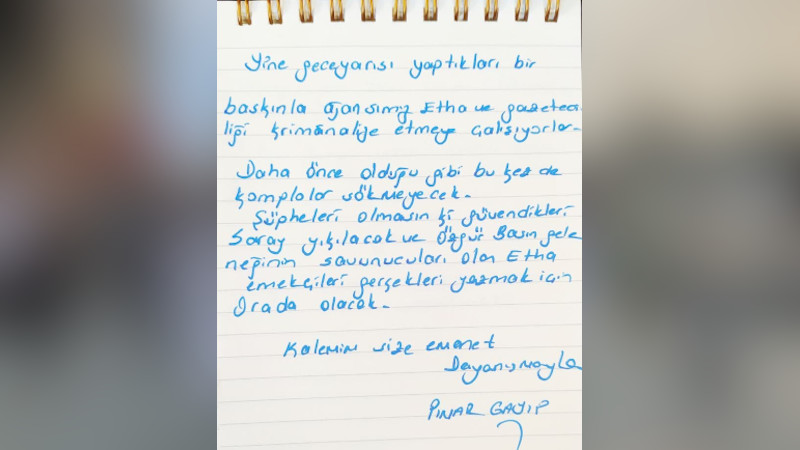 Yine geceyarısı yaptıkları bir
baskınla ajansımız Etha ve gazeteci
liği kriminalize etmeye çalışıyorlar.
Daha önce olduğu gibi bu kez de
komplolar sökmeyecek.
Şüpheleri olmasın ki güvendikleri
Saray yıkılacak ve Özgür Basın gele
neğinin savunucuları olan Etha
emekçileri gerçekleri yazmak için
Orada olacak.
Kalemim size emanet
Dayanışmayla
PINAR GAYIP